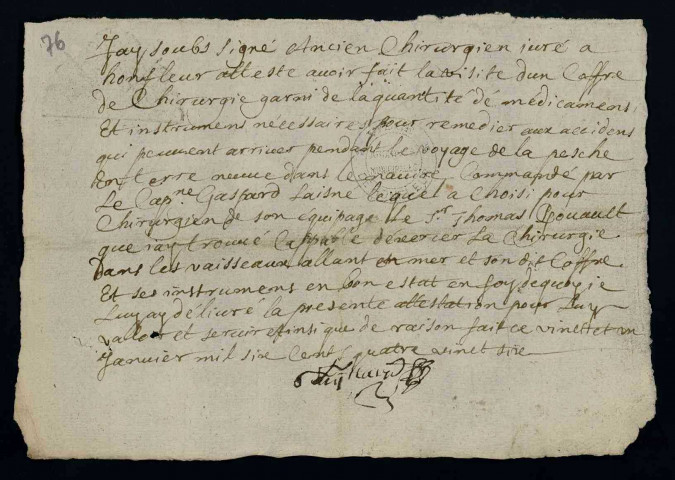 76
Jay soubs signé Ancien Chirurgien juré a
honfleur atteste avoir fait la visite dun Coffre
de Chirurgie garni de la quantité de medicamens
Et instrumens necessaires pour remedier aux accidens
qui peuvent arriver pendant le voyage de la pesche
en terre neuve dans le navire Commandé par
Le Capne Gaspard Laisne lequel a Choisi pour
Chirurgien de son equipage Le Sr Thomas
que jay trouvé Capable dexercer La Chirurgie
Dans les vaisseaux allant en mer et son dit Coffre
Et ses instrumens en bon estat en foy dequoy je
Luy ay delivré la presente attestation pour Luy
valloir et servir ainsi que de raison fait ce vinct et un
Janvier mil six Cent quatre vinct six